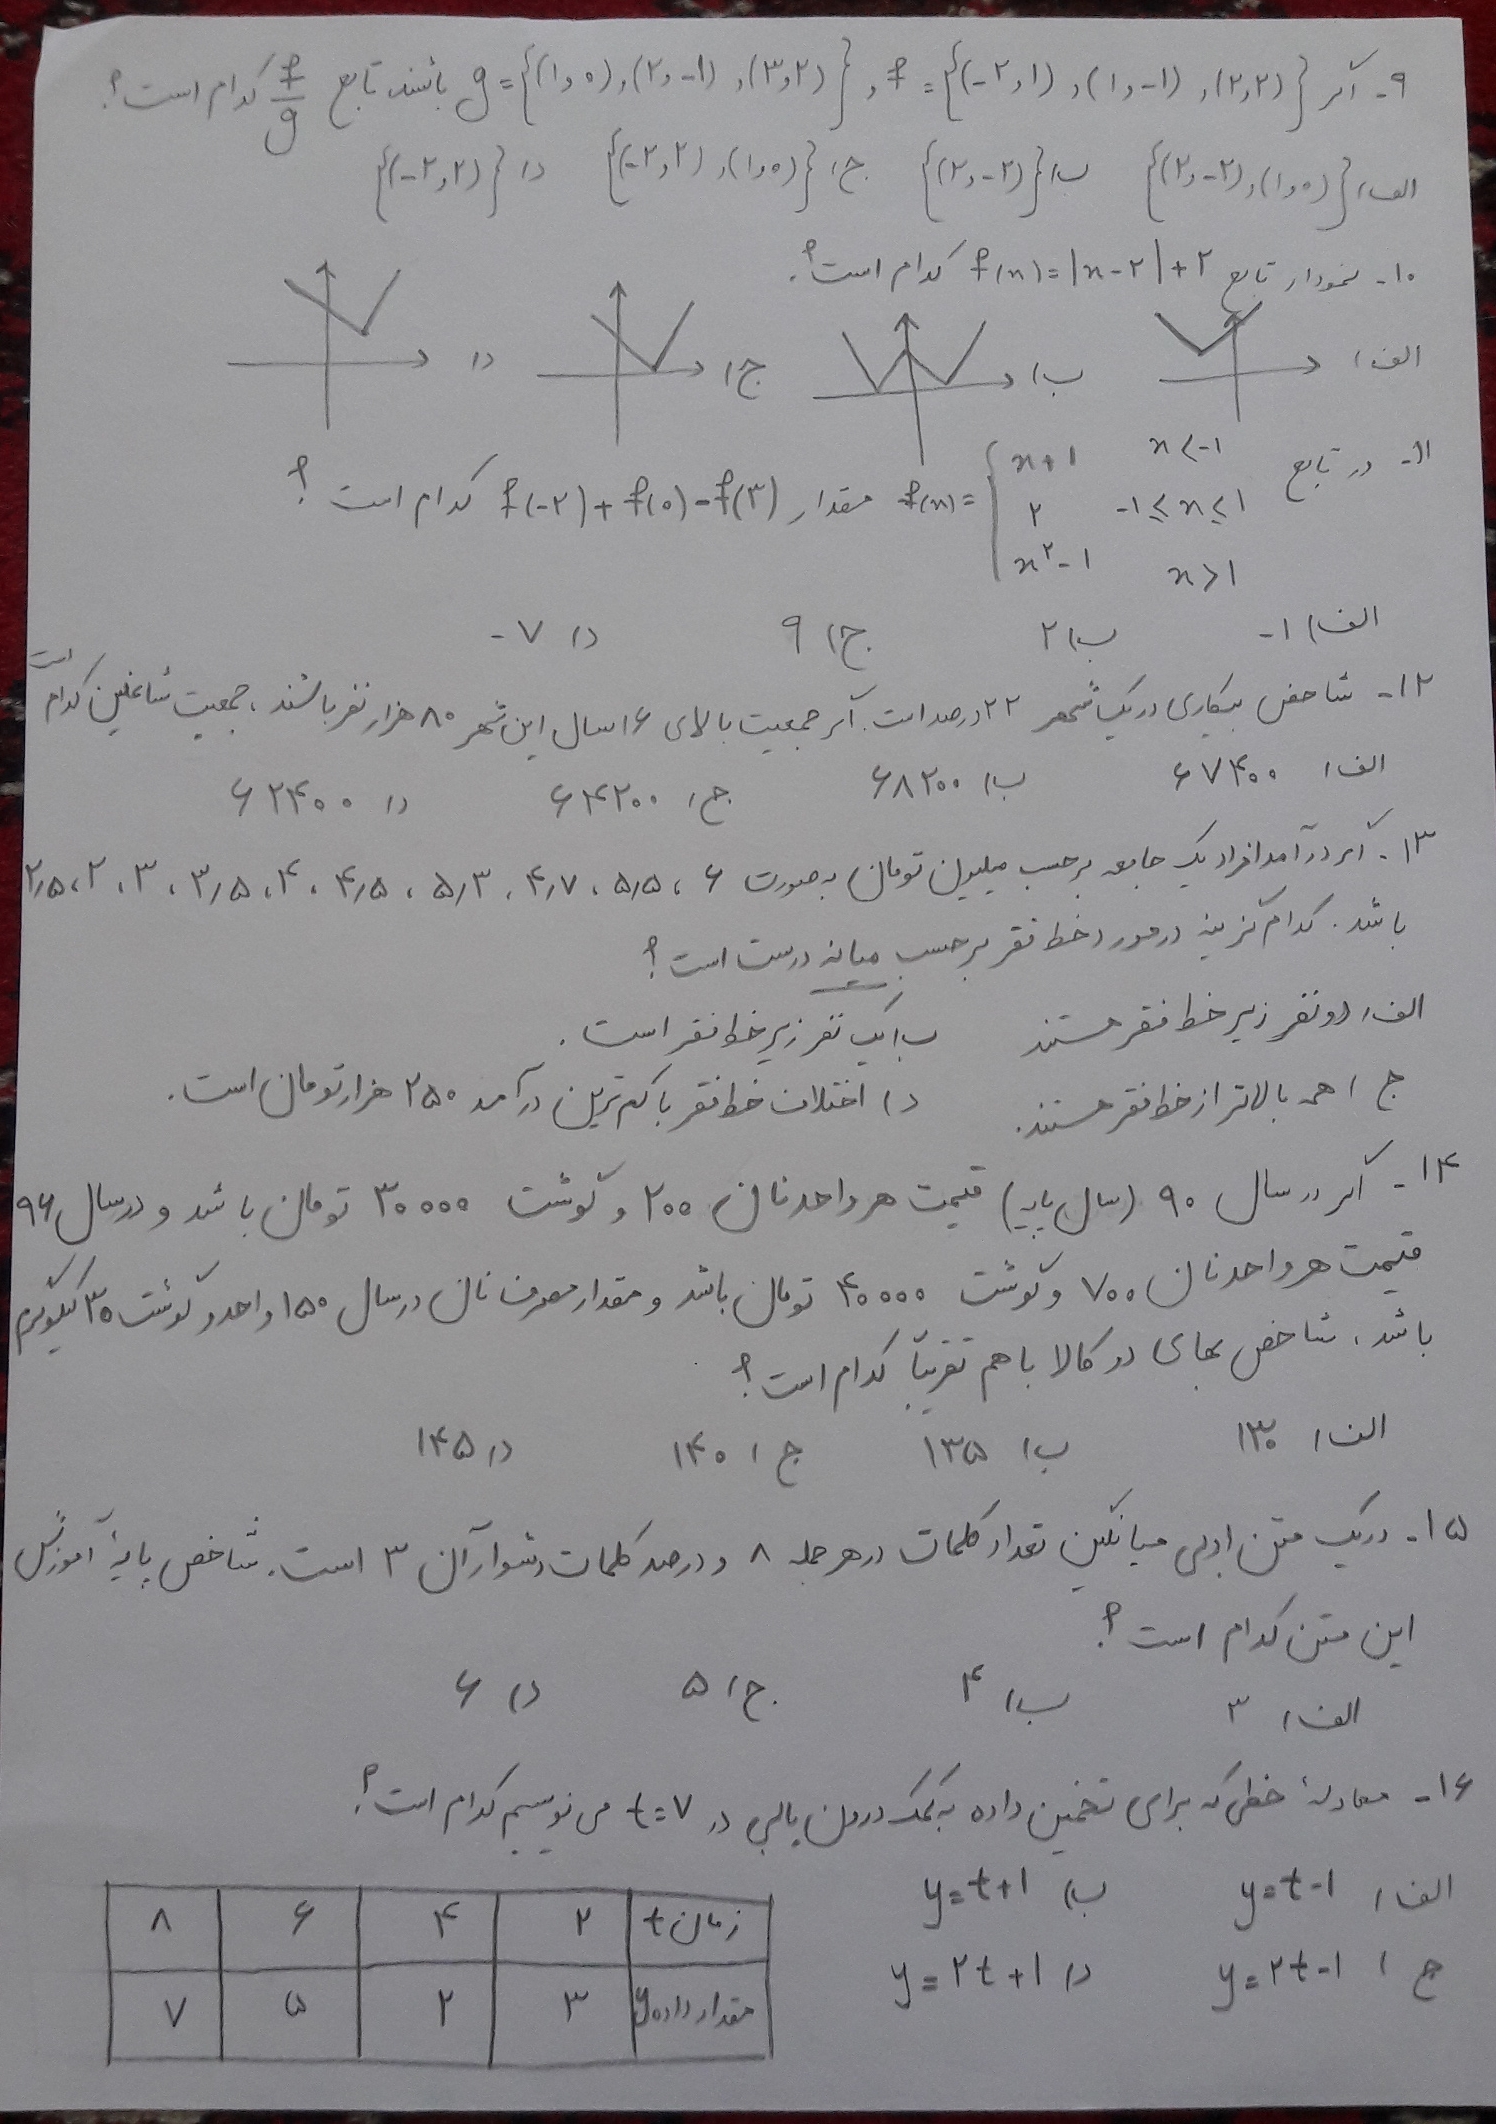 ۹- اگر f = {(-۲,۱) , (۱,-۱) , (۲,۲)} و g = {(۱,۰) , (۲,-۱) , (۳,۲)} باشند تابع f/g کدام است؟
الف) {(۲,-۲) , (۱,۰)} ب) {(۲,-۲)} ج) {(-۲,۲) , (۱,۰)} د) {(-۲,۲)}
۱۰- نمودار تابع f(x) = |x-۲| + ۲ کدام است؟
الف) ب) ج) د)
۱۱- در تابع f(x) = { x+۱ x<-۱
۲ -۱≤x≤۱ مقدار f(-۲)+f(۰)-f(۳) کدام است؟
x^۲-۱ x>۱
الف) -۱ ب) ۲ ج) ۹ د) -۷
۱۲- شاخص بیکاری در یک شهر ۲۲ درصد است. اگر جمعیت بالای ۱۶ سال این شهر ۸۰ هزار نفر باشند، جمعیت شاغلین کدام است
الف) ۶۷۴۰۰ ب) ۶۸۲۰۰ ج) ۶۴۲۰۰ د) ۶۲۴۰۰
۱۳- اگر درآمد افراد یک جامعه برحسب میلیون تومان به صورت ۶ ، ۵٫۵ ، ۴٫۷ ، ۵٫۳ ، ۴٫۵ ، ۴ ، ۳٫۵ ، ۳ ، ۲ ، ۲٫۵
باشد. کدام گزینه در مورد خط فقر برحسب میانه درست است؟
الف) دو نفر زیر خط فقر هستند ب) یک نفر زیر خط فقر است.
ج) همه بالاتر از خط فقر هستند. د) اختلاف خط فقر با کم‌ترین درآمد ۲۵۰ هزار تومان است.
۱۴- اگر در سال ۹۰ (سال پایه) قیمت هر واحد نان ۲۰۰ و گوشت ۳۰۰۰۰ تومان باشد و در سال ۹۶
قیمت هر واحد نان ۷۰۰ و گوشت ۴۰۰۰۰ تومان باشد و مقدار مصرف نان در سال ۱۵۰ واحد و گوشت ۳۰ کیلوگرم
باشد، شاخص بهای دو کالا با هم تقریباً کدام است؟
الف) ۱۳۰ ب) ۱۳۵ ج) ۱۴۰ د) ۱۴۵
۱۵- در یک متن ادبی میانگین تعداد کلمات در هر جمله ۸ و درصد کلمات دشوار آن ۳ است. شاخص پایهٔ آموزش
این متن کدام است؟
الف) ۳ ب) ۴ ج) ۵ د) ۶
۱۶- معادلهٔ خطی که برای تخمین داده به کمک درون یابی در t=۷ می نویسیم کدام است؟
الف) y=t-۱ ب) y=t+۱
ج) y=۲t-۱ د) y=۲t+۱
زمان t ۲ ۴ ۶ ۸
مقدار داده y ۳ ۲ ۵ ۷